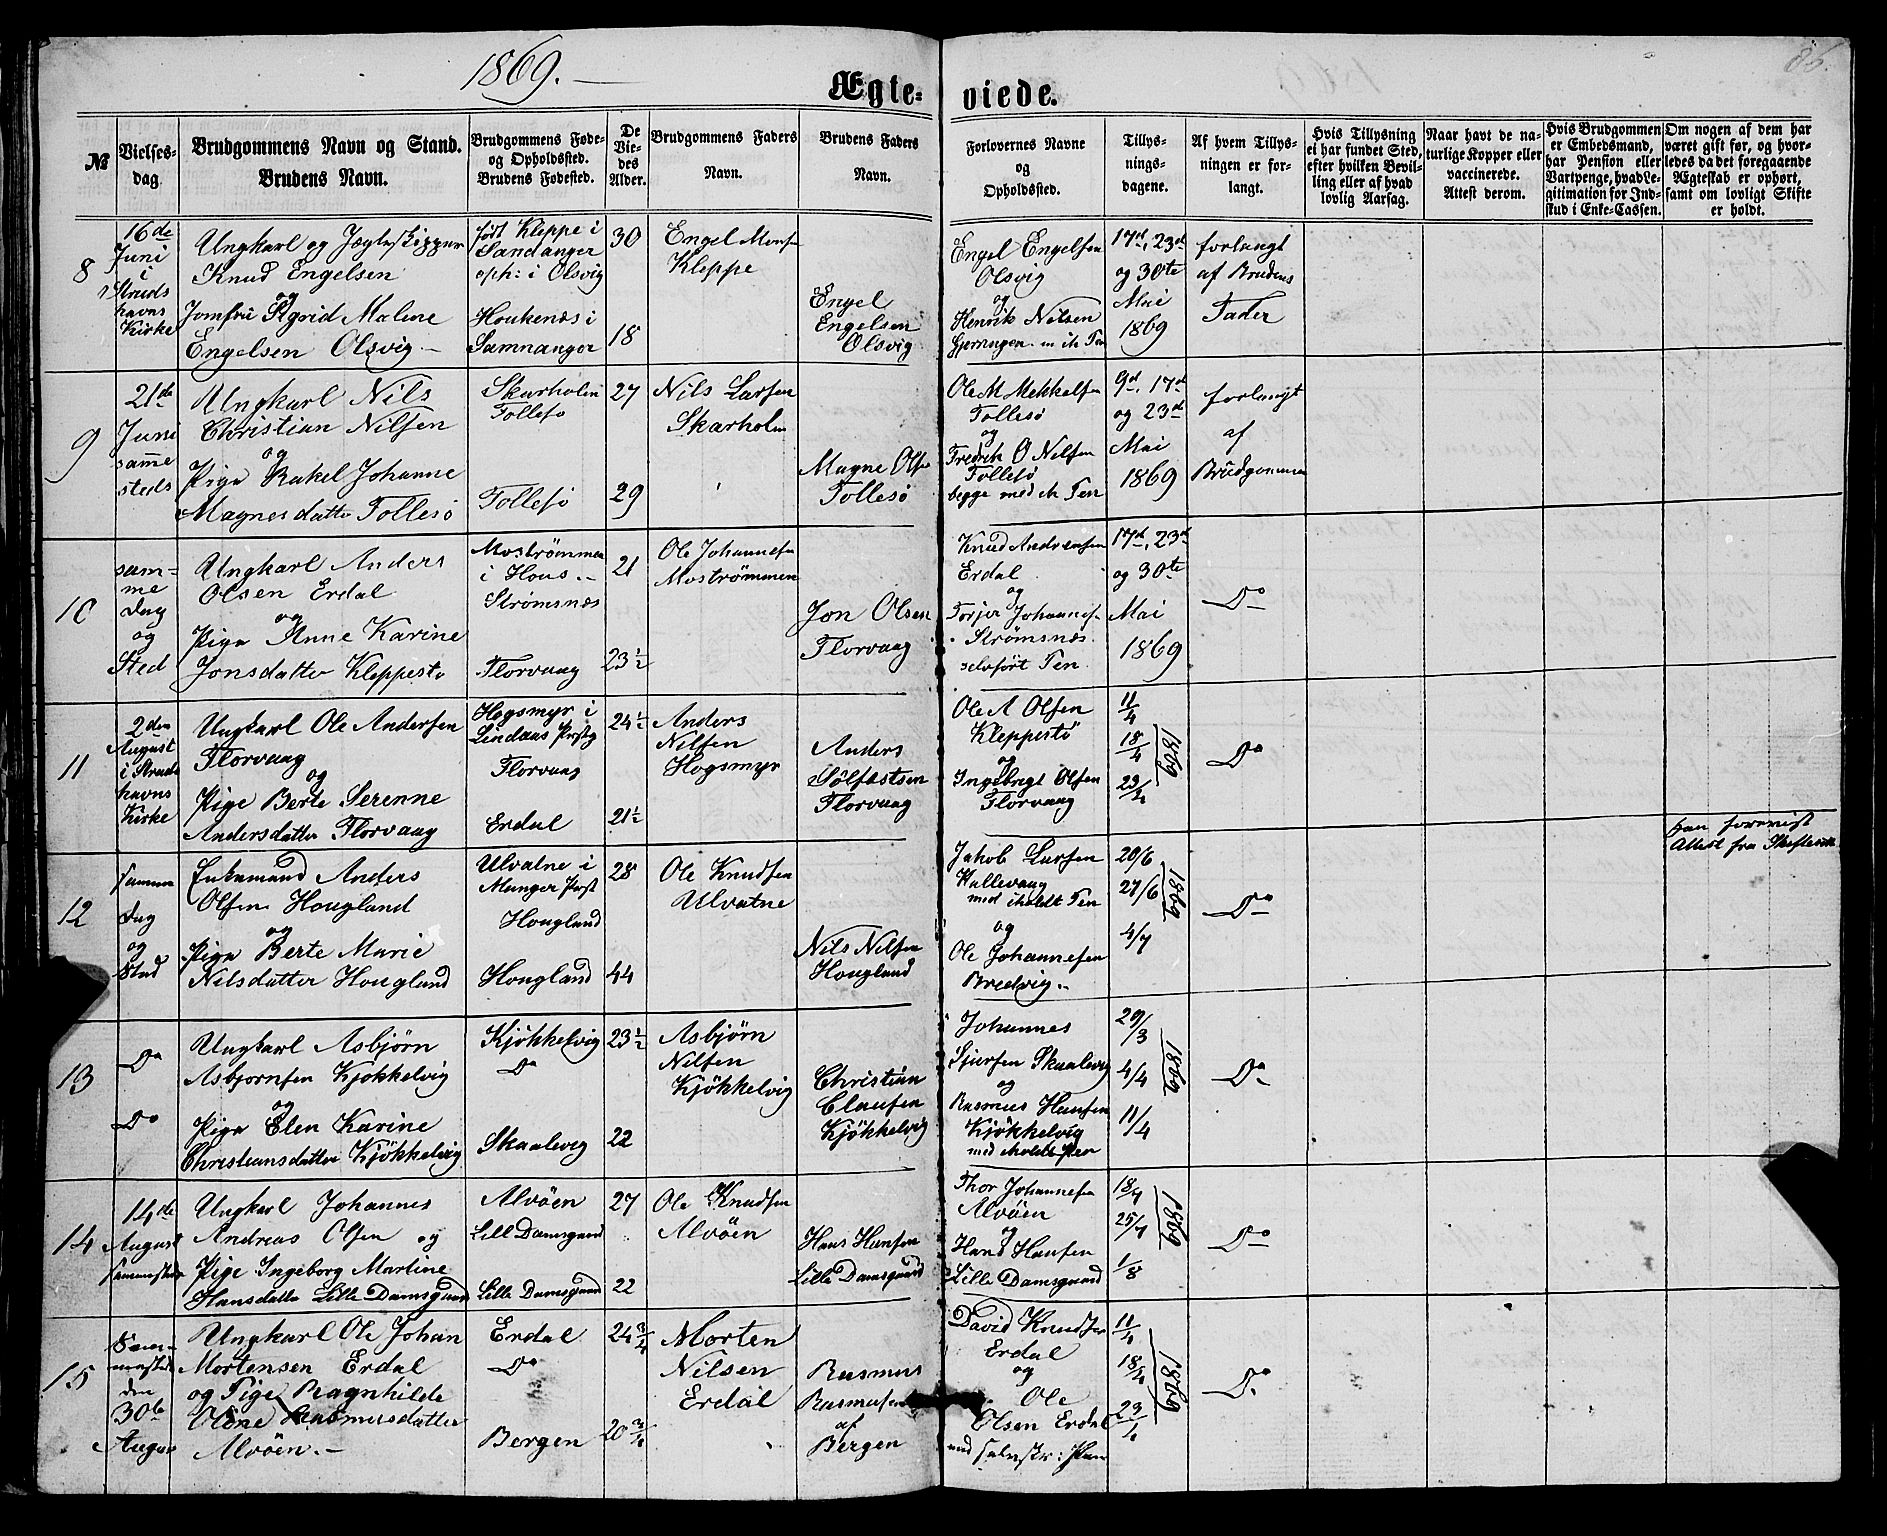 1869.
86.
Ægte-viede.
№
Vielses-
dag.
Brudgommens Navn og Stand.
Brudens Navn.
Brudgommens Føde-
og Opholdssted.
Brudens Fødested.
De
Vie-
des
Alder.
Brudgommens Faders
Navn.
Brudens Faders
Navn.
Forlovernes Navne
og
Opholdssted.
Tillys-
nings-
dagene.
Af hvem Tillys-
ningen er for-
langt.
Hvis Tillysning
ei har fundet Sted,
efter hvilken Bevil-
ling eller af hvad
lovlig Aarsag.
Naar havt de na-
turlige Kopper eller
vaccinerede.
Attest derom.
Hvis Brudgommen
er Embedsmand,
har Pension eller
Vartpenge, hvad Le-
gitimation for Ind-
skud i Enke-Cassen.
Om nogen af dem har
været gift før, og hvor-
ledes da det foregaaende
Ægteskab er ophørt,
samt om lovligt Skifte
er holdt.
8
16de
Juni
i
Struds
havns
Kirke
Ungkarl og
Knud Engelsen
og
Jomfru Sigrid Malene
Engelsen Olsvig
født Kleppe i
Sandanger
oph: i Olsvig
Houkenæs i
Samnanger
30
18
Engel Mons
Kleppe
Engel
Engelsen
Olsvig
Engel Engelsen
Olsvig
og
Henrik Nelsen
17d, 23d
og 30te
Mai
1869
forlangt
af Brudens
Fader
9
21de
Juni
samme
steds
Ungkarl Nils
Christian Nilsen
og
Pige Rakel Johanne
Magnesdatter Follesö
Skarholm
Follesö
Follesö
27
29
Nils Larsen
Skarholm
Magne Ols
Follesö
Ole M Mekkelsen
Follesö
og
Fredrik O Nilsen
Follesö
begge med
9d, 17d
og 23d
Mai
1869
forlangt
af
Brudgommen
10
sam-
me
Dag
og
Sted
Ungkarl Anders
Olsen Erdal
og
Pige Anne Karine
Jonsdatter Kleppestö
Moströmmen
i Hous.
Strömsnæs
Florvaag
21
23½
Ole Johannesen
Moströmmen
Jon Olsen
Florvaag
Knud Andersen
Erdal
og
Torjer Johannes
Strömsnæs
17d, 23d
og 30te
Mai
1869
Do
11
2den
August
i Struds
havns
Kirke
Ungkarl Ole Andersen
Florvaag
og
Pige Berte Serenne
Andersdatter Florvaag
Hogsmyr i
Lindaas Præstg
Florvaag
Erdal
24½
21½
Anders
Nilsen
Hogsmyr
Anders
Sölfæstsen
Florvaag
Ole A Olsen
Kleppestö
og
Ingebrigt Olsen
Florvaag
11/4
18/4
1869
Do
12
samme
Dag
og
Sted
Enkemand Anders
Olsen Hougland
og
Pige Berte Marie
Nilsdatter Hougland
Ulvatne i
Manger Præst
Hougland
Hougland
28
44
Ole Knudsen
Ulvatne
Nils Nilsen
Hougland
Jakob Larsen
og
Ole Johannesen
Bredvig
20/6
27/6
4/7
1869
Do
har forevist
Attest fra Skifteret
13
Do
Do
Ungkarl Asbjörn
Asbjornsen Kjökkelvig
og
Pige Elen Karine
Christensdatter Kjökkelvig
Kjökkelvig
Do
Skaalevig
23½
22
Asbjörn
Nilsen
Kjökkelvig
Christian
Clausen
Kjökkelvig
Johannes
Sjursen Skaalevig
og
Rasmus Hansen
Kjökkelvig
29/3
4/4
11/4
1869
Do
14
14de
August
Ungkarl Johannes
Andreas Olsen og
Pige Ingeborg Martine
Hansdatter Lille Damsgaard
Alvöen
Lille Damsgaard
Lille Damsgaard
27
22
Ole Knudsen
Alvöen
Hans Hansen
Lille Damsgaard
Thor Johannesen
Alvöen
og
Hans Hansen
Lille Damsgaard
18/7
25/7
1/8
1869
Do
15
Sam-
mested
den
30te
August
Ungkarl Ole Johan
Mortensen Erdal
og Pige Ragnhilde
Oline Rasmusdatter
Alvöen.
Erdal
Do
Bergen
24¾
20¾
Morten
Nilsen
Erdal
Rasmus
Rasmusen
af
Bergen
David Knudsen
Erdal
og
Ole
Olsen Erdal
1869
Do